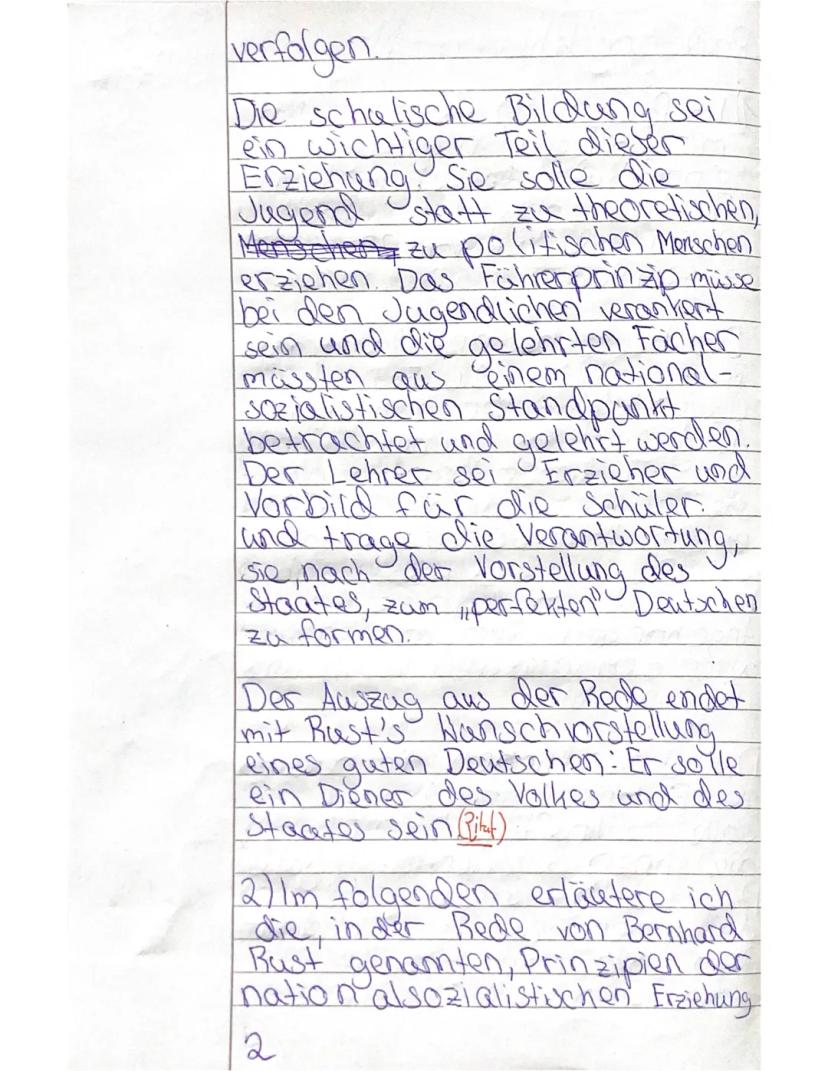 verfolgen.
Die schulische Bildung sei
ein wichtiger Teil dieser
Erziehung. Sie solle die
Jugend statt zu theoretischen,
Menschen, zu politischen Menschen
erziehen. Das Führerprinzip müsse
bei den Jugendlichen verankert
sein und die gelehrten Fächer
müssten aus einem national-
sozialistischen Standpunkt
betrachtet und gelehrt werden.
Der Lehrer sei Erzieher und
Vorbild für die Schüler.
und trage die Verantwortung,
sie, nach der Vorstellung des
Staates, zum „perfekten" Deutschen
zu formen.
Der Auszug aus der Rede endet
mit Rust's Wunschvorstellung
eines guten Deutschen: Er solle
ein Diener des Volkes und des
Staates sein. (Zitat)
2) Im folgenden erläutere ich
die, in der Rede von Bernhard
Rust genannten, Prinzipien der
nationalsozialistischen Erziehung
2